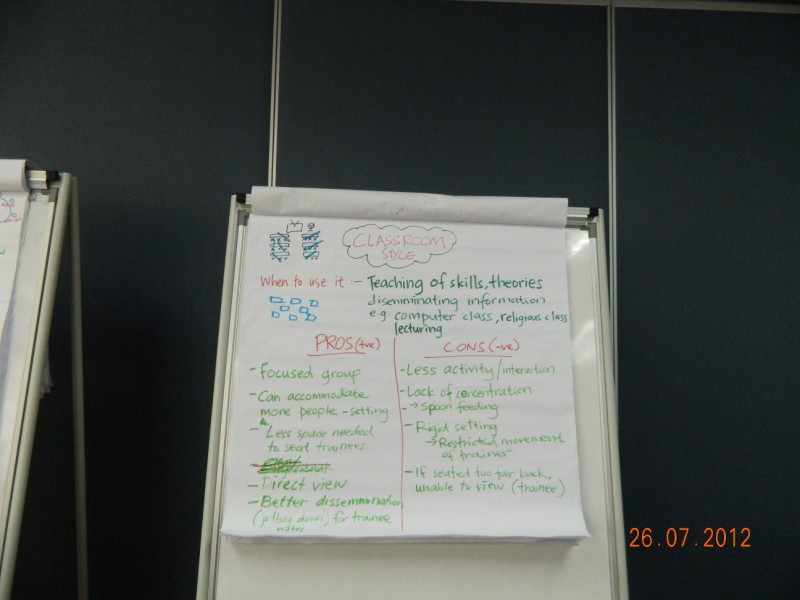 CLASSROOM
STYLE
When to use it :- Teaching of skills, theories
disemminating information
e.g computer class, religious class
lecturing
PROS (+ve)
- Focused group
- Can accommodate
more people - setting
- Less space needed
to seat trainees
- Direct view
- Better dissemmination
(jotting down) for trainee
notes
CONS (-ve)
- Less activity/interaction
- Lack of concentration
- → Spoon feeding
- Rigid setting
→ Restricted movement
of trainer
- If seated too far back,
unable to view (trainee)
26.07.2012